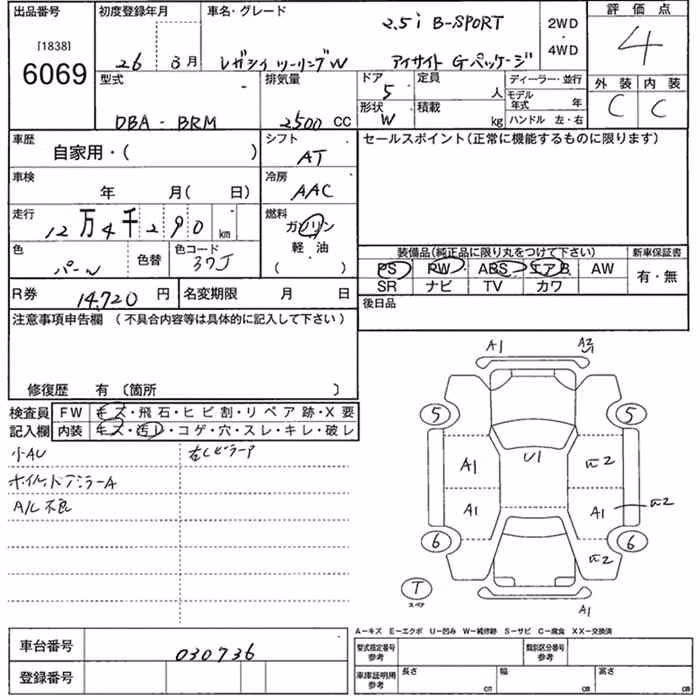 出品番号
[1838]
6069
初度登録年月
26 3月
車名・グレード
2.5i B-SPORT
レガシィツーリングW アイサイト Gパッケージ
2WD
・
4WD
評価点
4
外装 内装
C C
型式
DBA - BRM
排気量
2500 CC
ドア
5
形状
W
定員
人
積載
kg
ディーラー・並行
モデル年式 年
ハンドル 左・右
車歴
自家用・( )
シフト
AT
車検
年 月( 日)
冷房
AAC
走行
12万4千290 km
燃料
ガソリン
軽油
( )
色
パール
色替
色コード
37J
R券 14,720 円
名変期限 月 日
セールスポイント(正常に機能するものに限ります)
装備品(純正品に限り丸をつけて下さい)
PS PW ABS エアB AW
SR ナビ TV カワ
新車保証書
有・無
後日品
注意事項申告欄 (不具合内容等は具体的に記入して下さい)
修復歴 有 〔箇所 〕
検査員
記入欄
FW キズ・飛石・ヒビ割・リペア跡・X要
内装 キズ・汚レ・コゲ・穴・スレ・キレ・破レ
小AU
A/L不良
A1
A1
A1
U1
A1
W2
W2
W2
A1
5
5
6
6
T
スペア
A-キズ E-エクボ U-凹み W-補修跡 S-サビ C-腐食 XX-交換済
車台番号 030736
登録番号
型式指定番号
参考
類別区分番号
参考
車庫証明用
参考
長さ cm
幅 cm
高さ cm